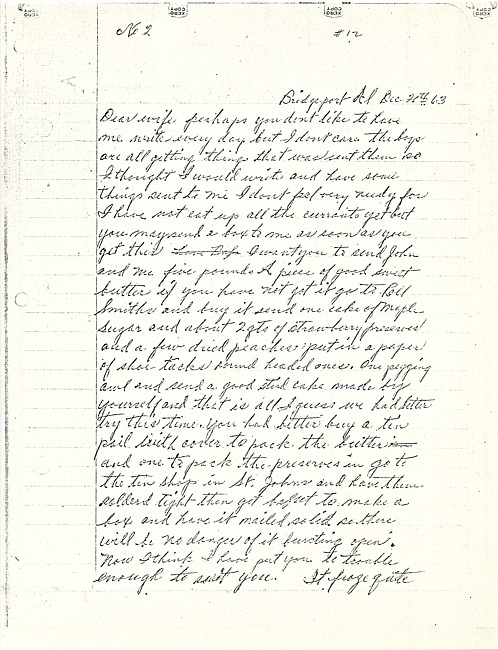 No 2 #12
Bridgeport Al Dec 20th 63
Dear wife perhaps you dont like to have
me write every day but I dont care the boys
are all getting things that was sent them so
I thought I would write and have some
things sent to me I dont feel very needy for
I have not eat up all the currants yet but
you may send a box to me as soon as you
get this I want you to send John
and me five pounds A piece of good sweet
butter if you have not got it go to
Smiths and buy it send one cake of Maple
sugar and about 2 qts of strawberry preserves
and a few dried peaches put in a paper
of shoe tacks round headed ones. One pegging
awl and send a good sted cake made by
yourself and that is all I guess we had better
try this time. you had better buy a tin
pail with cover to pack the butter in
and one to pack the preserves in go to
the tin shop in St. Johns and have them
solderd tight then get to make a
box and have it nailed solid so there
will be no danger of it bursting open.
Now I think I have put you to trouble
enough to suit you. It froze quite